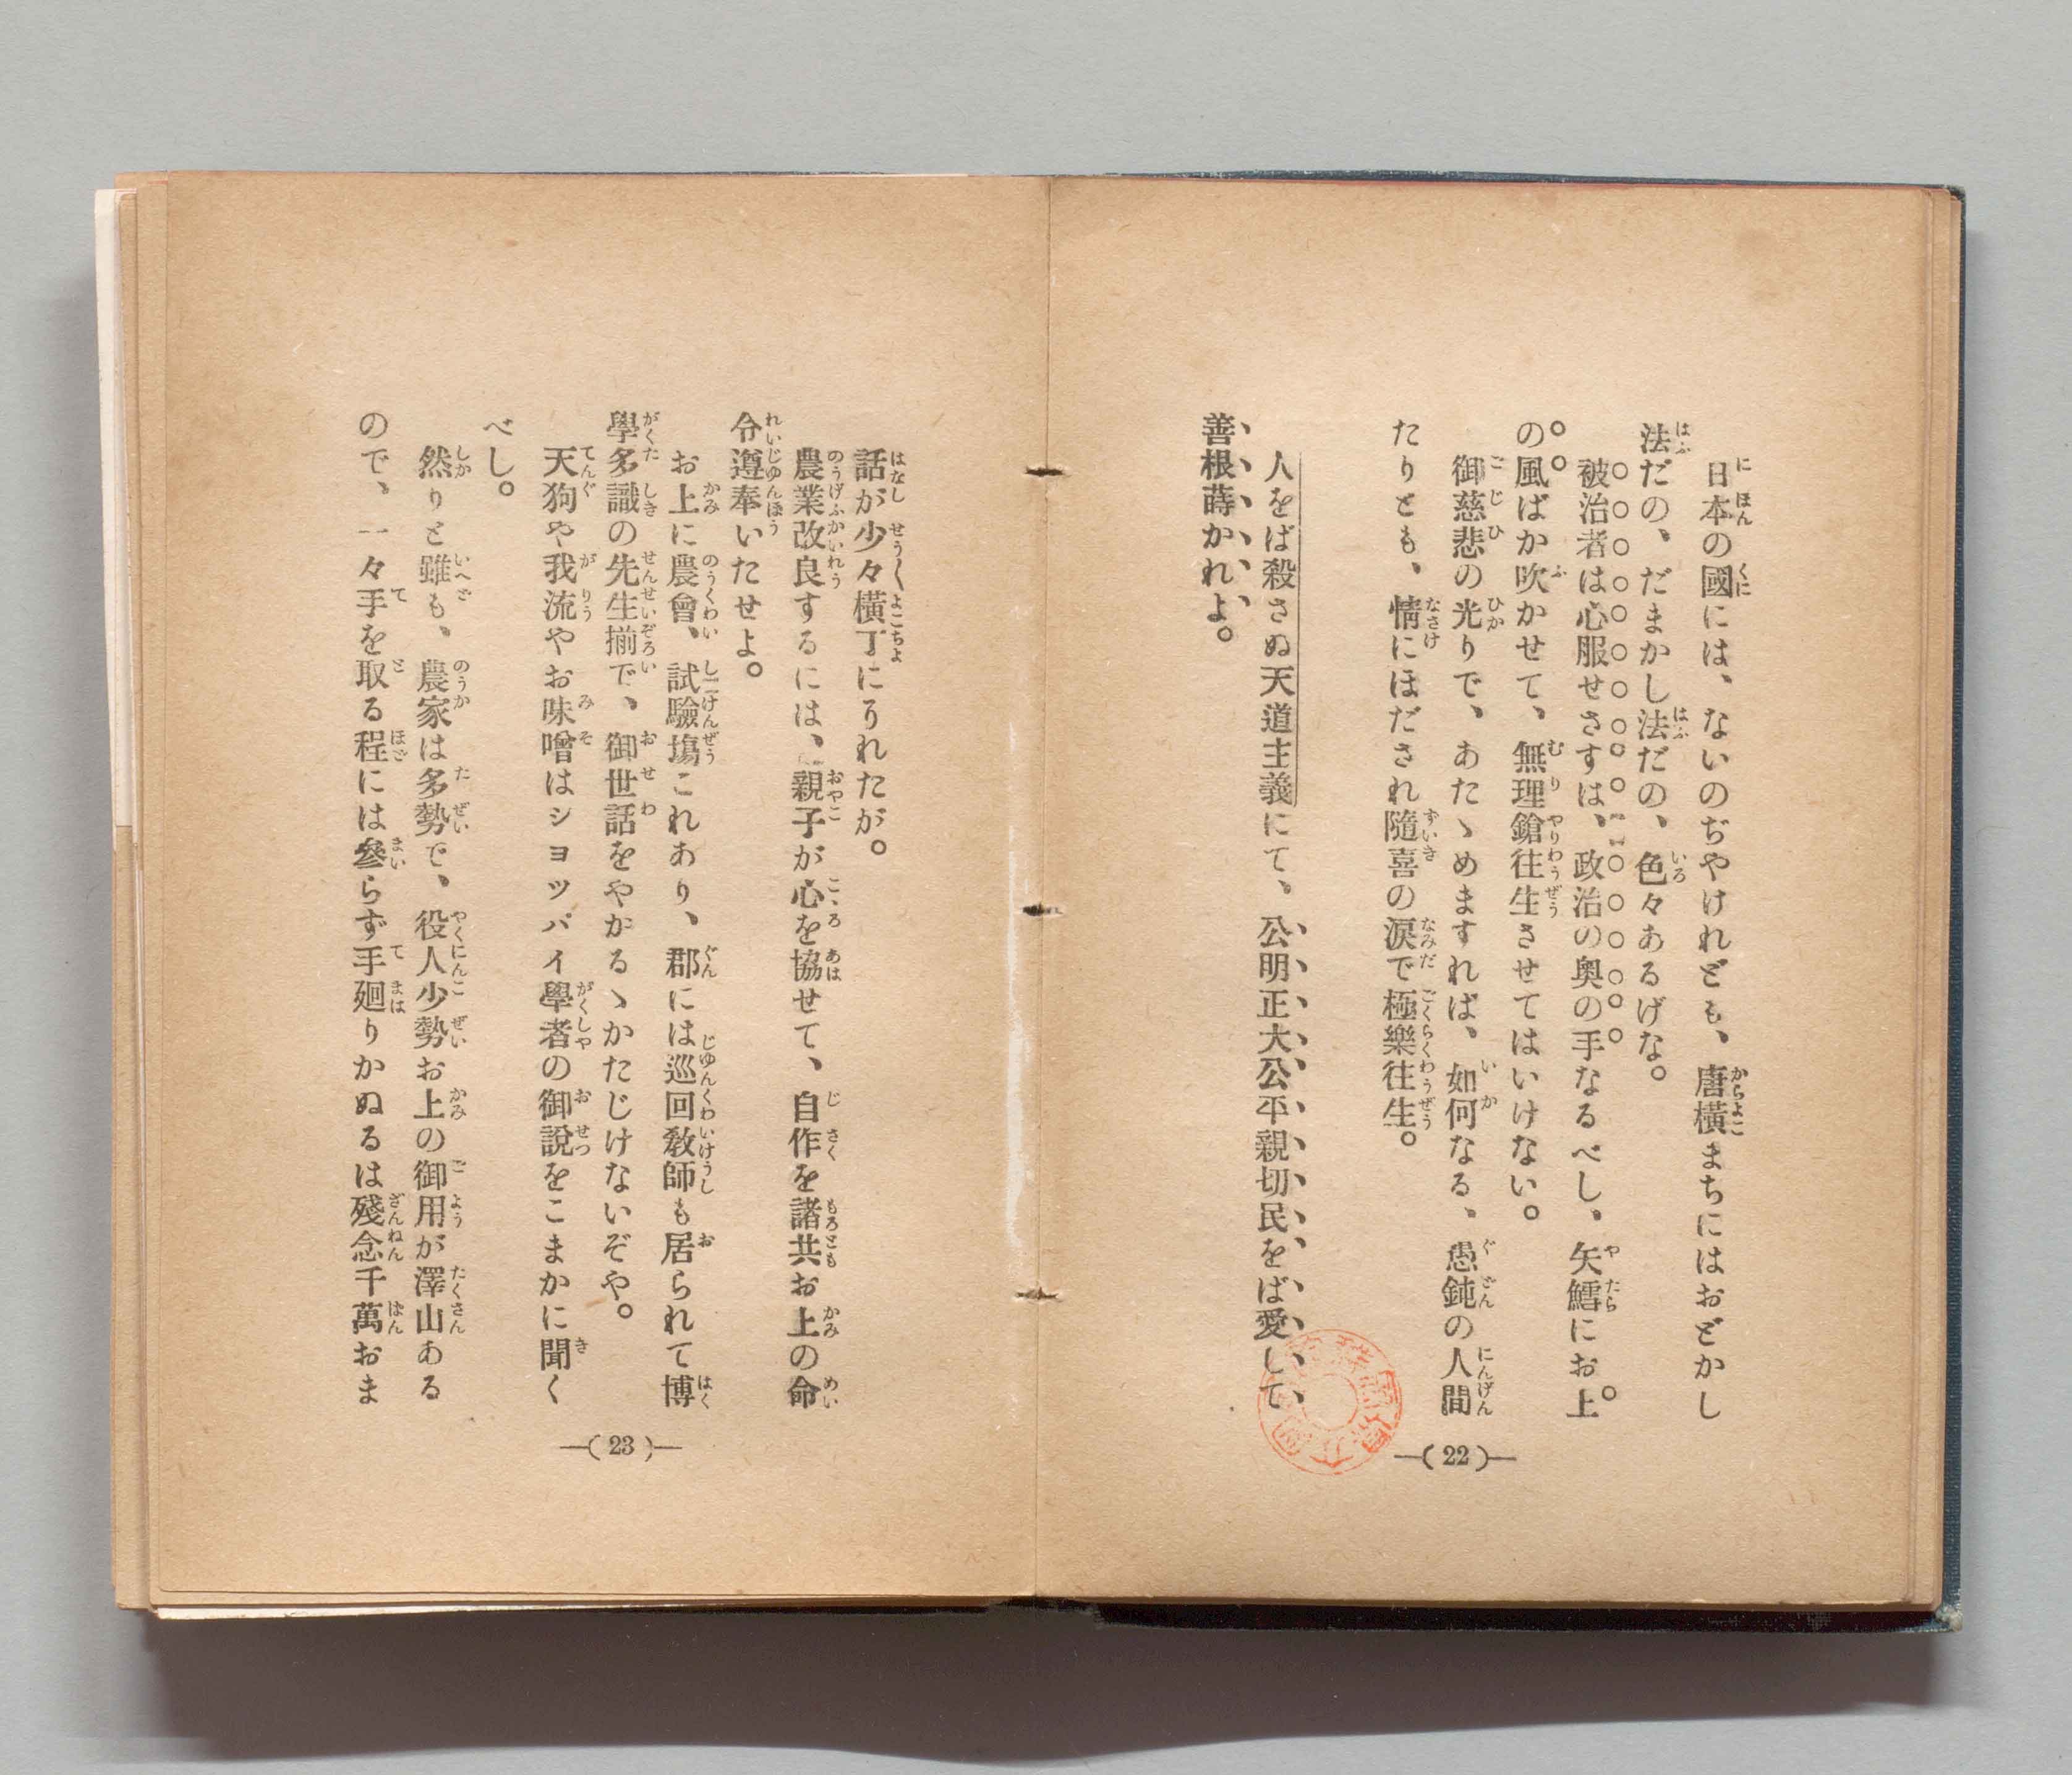 日本の國には、ないのぢやけれども、唐橫まちにはおどかし
法だの、だまかし法だの、色々あるげな。
被治者は心服せさすは、政治の奧の手なるべし、矢鱈にお上
の風ばか吹かせて、無理鎗往生させてはいけない。
御慈悲の光りで、あたゝめますれば、如何なる、愚鈍の人間
たりとも、情にほだされ隨喜の淚で極樂往生。
人をば殺さぬ天道主義にて、公明正大公平親切民をば愛して
善根蒔かれよ。
—( 22 )—
話が少々橫丁にりれたが。
農業改良するには、親子が心を協せて、自作を諸共お上の命
令遵奉いたせよ。
お上に農會、試驗塲これあり、郡には巡回敎師も居られて博
學多識の先生揃で、御世話をやかるゝかたじけないぞや。
天狗や我流やお味噌はショッパイ學者の御說をこまかに聞く
べし。
然りと雖も、農家は多勢で、役人少勢お上の御用が澤山ある
ので、一々手を取る程には參らず手廻りかぬるは殘念千萬おま
—( 23 )—